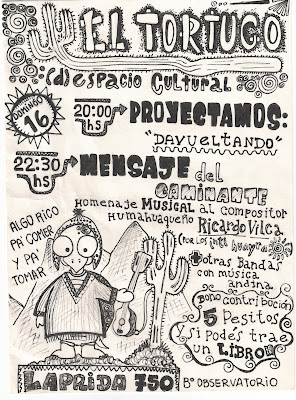 EL TORTUGO
(d)espacio Cultural
DOMINGO
16
20:00
hs
PROYECTAMOS:
"DAVUELTANDO"
22:30
hs
MENSAJE del
CAMINANTE
Homenaje MUSICAL al compositor
Humahuaqueño
Ricardo Vilca
(Por los inti huayra)
+otras Bandas
con música
andina
ALGO RICO
PA' COMER
Y PA'
TOMAR
Bono contribución
5 Pesitos
Y si Podés trae
un LIBRO
LAPRIDA 750
Bº OBSERVATORIO